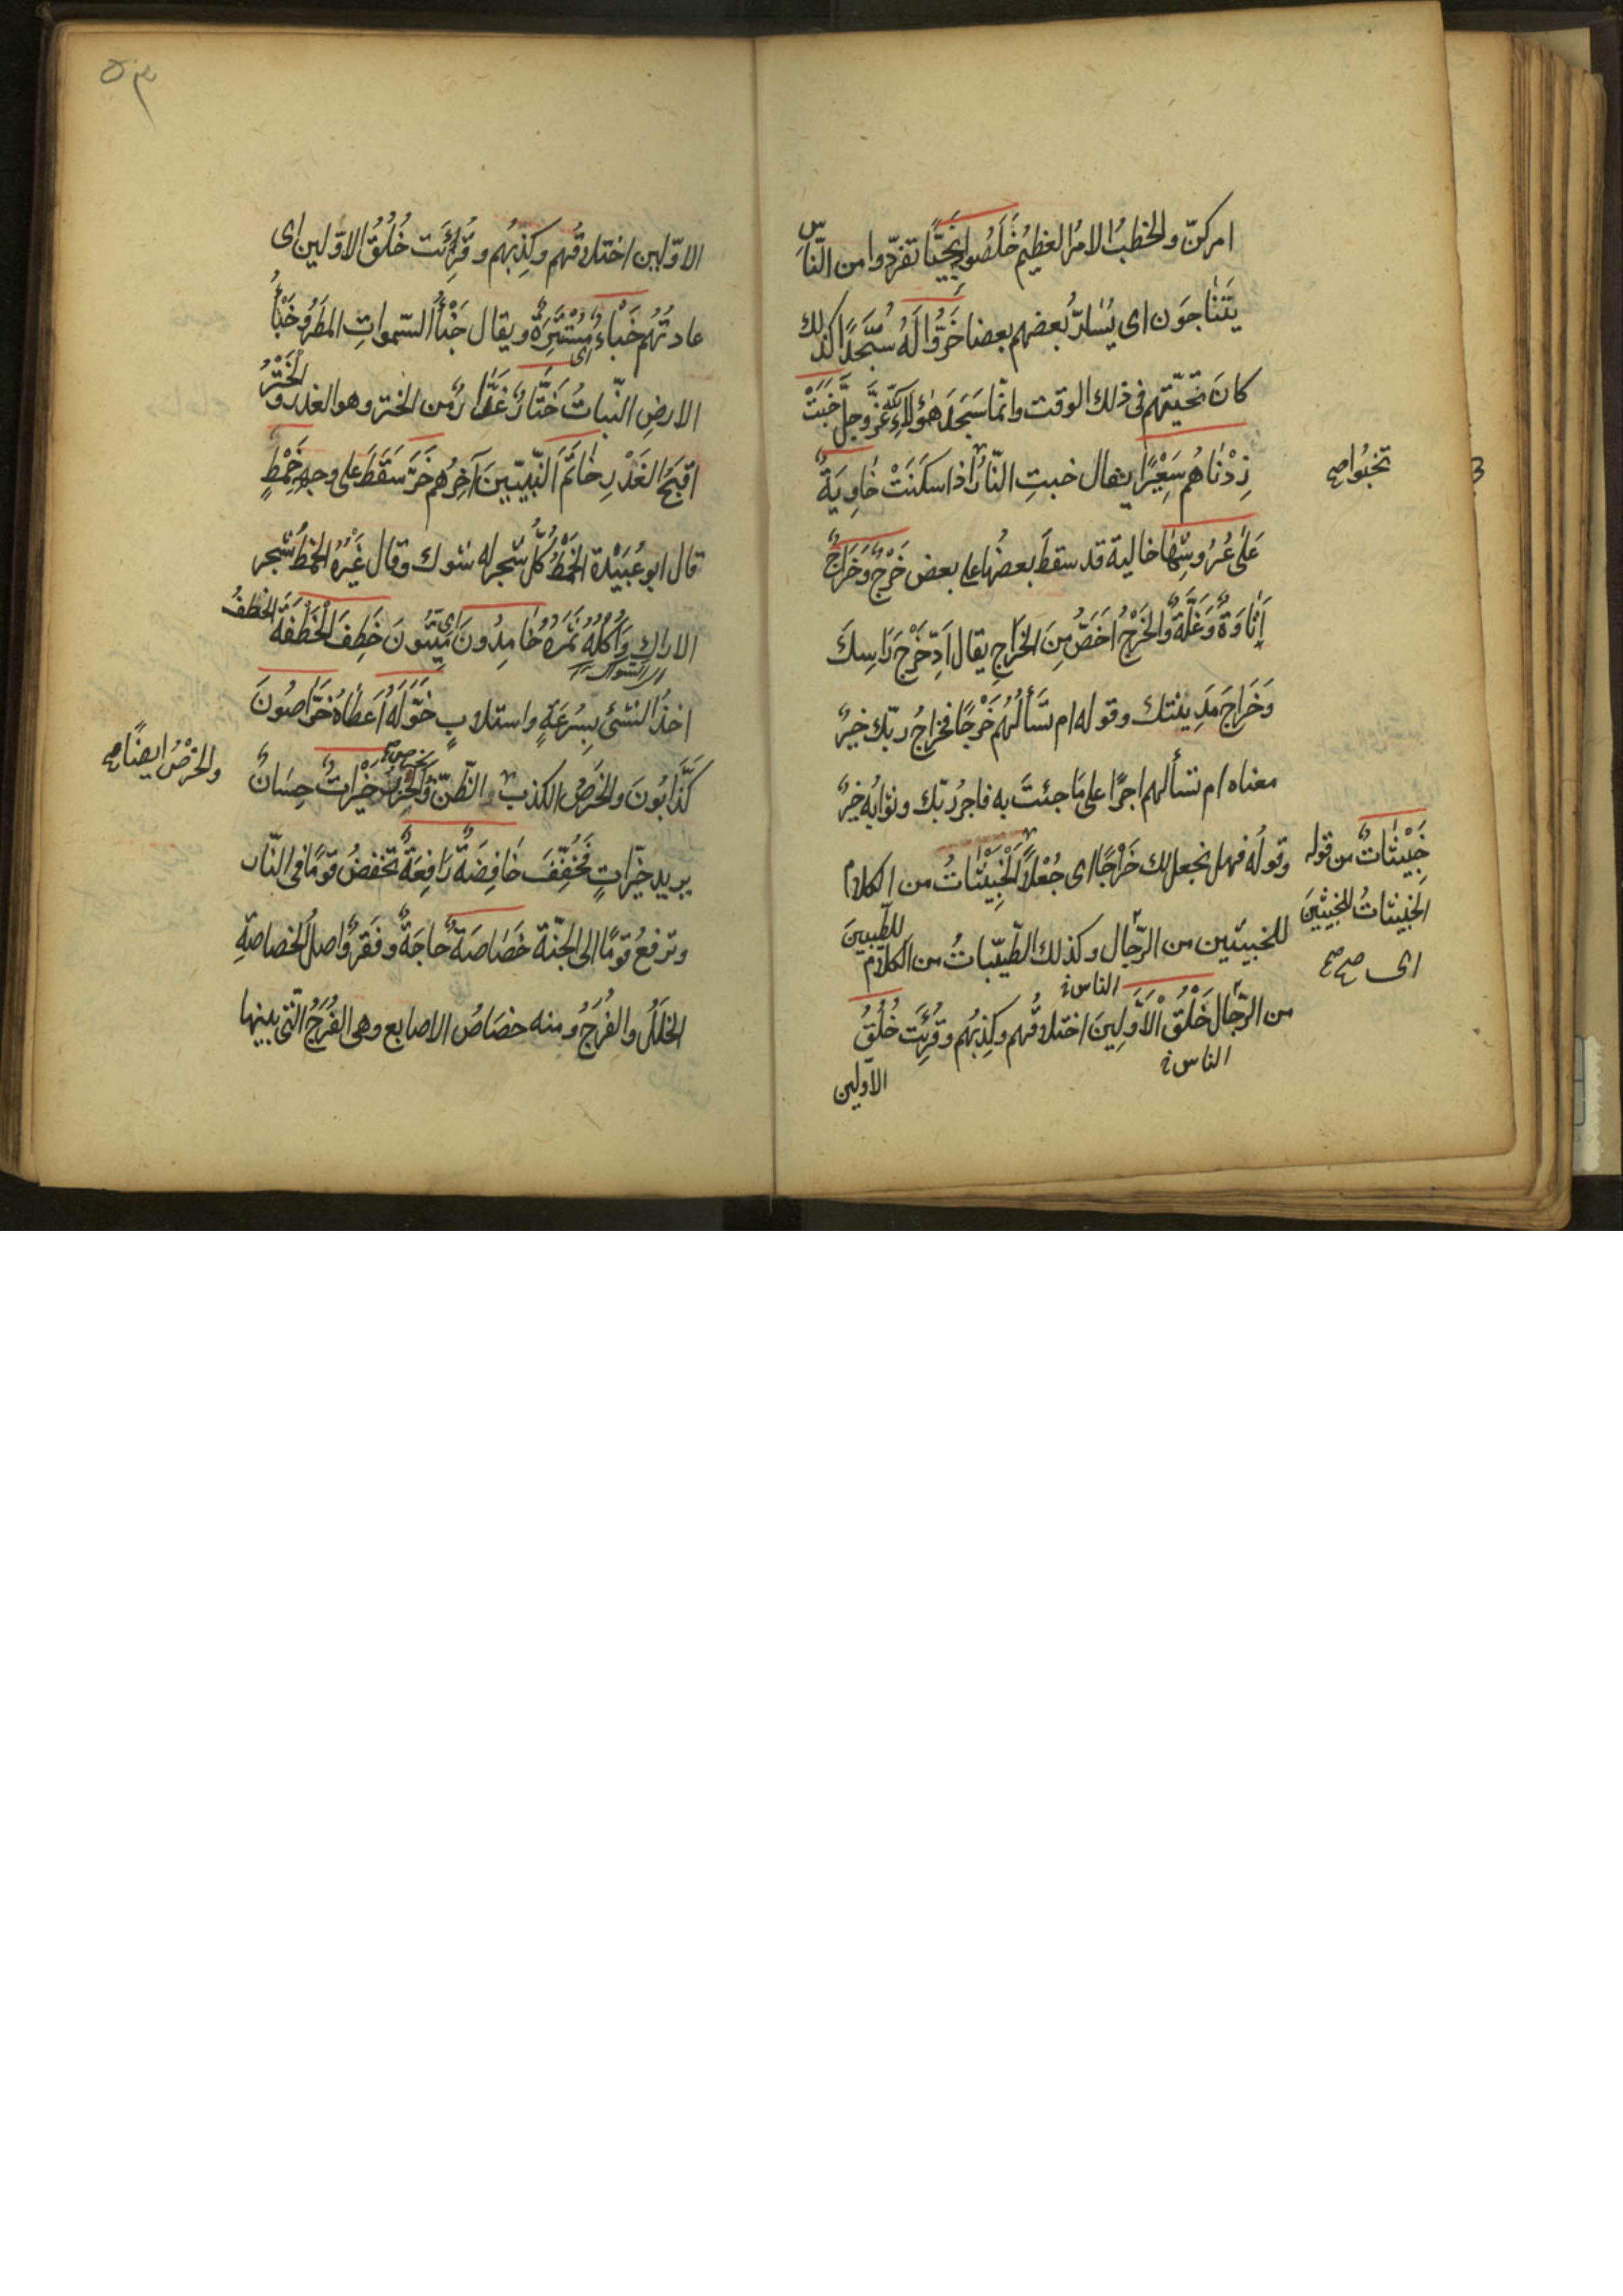 امركنّ والخطبُ الامرُ العظيمُ خَلَصُوا نَجِيًّا تفرّدوا من النّاس
يَتَنَاجَون اى يُسَارُّ بعضهم بعضا خَرُّوا لَهُ سُجَّدًا كذلك
كانَ تحيّتهم فى ذلك الوقت وانّما سَجَدَ هٰؤلاءِ لله عزّ وجلّ خَبَتْ
زِدْنَاهُم سَعِيْرًا يقال خبتِ النّارُ اذا سكَنَتْ خَاوِيَةٌ
تخبُوا صح
عَلٰى عُرُوشِهَا خالية قد سقطَ بعضُها على بعض خَرْجٌ وَخَرَاجٌ
إِتَاوَةٌ وَغَلَّةٌ والخَرْجُ اخَصُّ مِنَ الخَرَاجِ يقال اَدِّ خَرْجَ رَاسِكَ
وَخَرَاجَ مَدِينتك وقوله ام تَسْأَلُهُم خَرْجًا فخراجُ ربّك خيرٌ
معناه ام تسألهم اجرًا على مَا جئتَ به فاجرُ ربّك وثوابُه خيرٌ
وقولُه فهل نجعل لك خَرْجًا اى جُعْلًا الْخَبِيْثَاتُ من الكلام
خَبِيْثَاتٌ من قوله
الخبيثاتُ للخبيثينَ
اى صح صح
للخبيثين من الرّجال وكذلك الطّيّباتُ من الكلام
للطّيبينَ
الناس
من الرّجال خَلْقُ الْأَوَّلِينَ اختلاقُهم وكِذبُهم وقُرِئَت خُلُقُ
الناس
الأولين
٥٣
الاوّلين اختلاقُهم وكذِبُهم وقُرِئَت خُلُقُ الاوّلين اى
عادتُهُم خَبْاءَ مُسْتَتِرَةٌ ويقال خَبْأُ السّمواتِ المطَرُ وخَبْأُ
اى
الارضِ النّباتُ خَتَّارٌ غَدَّارٌ من الختر وهو الغدر و الْخَتْرُ
اقبَحُ الغَدْرِ خَاتَمَ النَّبِيّينَ آخِرُهم خَرَّ سَقَطَ على وجهه خَمْطٍ
قال ابو عُبَيْدَة الخَمْطُ كُلُّ شجر له شوك وقال غَيْرُه الخمطُ شجر
الاراك وَأُكُلُهُ ثمَرُهُ خَامِدُونَ اى مَيِّتُونَ خَطِفَ الْخَطْفَةَ الخطفُ
اخذُ الشئ بِسُرعَةٍ واستلابٍ خَوَّلَهُ اَعطَاهُ خَرَّاصُونَ
كَذَّابُونَ والخَرصُ الكذب الظّنّ وَالْحِزْرُ خَيْرَاتٌ حِسَانٌ
والخَرْصُ ايضًا صح
يريد خَيّرَاتٍ فَخُفِّفَ خَافِضَةٌ رَافِعَةٌ تخفضُ قومًا فى النّار
وترفعُ قومًا الى الجنّة خَصَاصَةٌ حاجَةٌ وفَقرٌ واصلُ الخصاصةِ
الخلَلُ والفُرَجُ ومنه خصَاصُ الاصابع وهى الفُرَجُ الّتى بينها